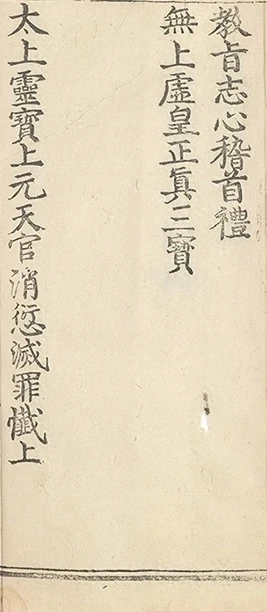 教旨志心稽首禮
無上虛皇正眞三寳
太上靈寳上元天官消愆滅罪懺上